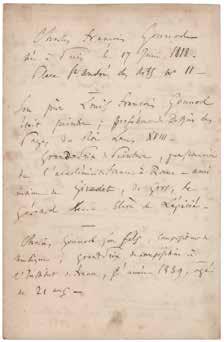 Charles François Gounod
né à Paris le 17 Juin 1818.
Place St André des Arts nº 11 —
Son père Louis François Gounod
était peintre ; professeur de dessin des
Pages du Roi Louis XVIII —
Grand Prix de Peinture, pensionnaire
de l'académie de France à Rome — ami
intime de Girodet, de Gros, de
Gérard élève de Lépicié —
Charles Gounod son fils, compositeur de
musique ; grand prix de composition à
l'Institut de France, l'année 1839, agé
de 21 ans —